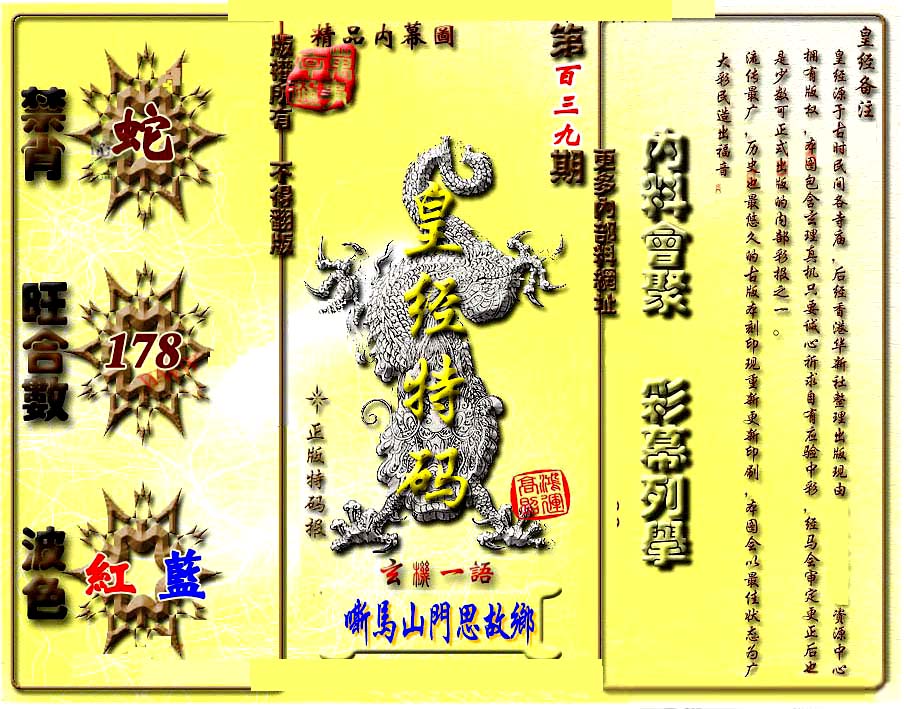 禁肖
蛇
旺合數
178
波色
紅 藍
版權所有 不得翻版
精品内幕圖
第百三九期
更多内部料網址
皇经特码
正版特码报
鸿運高照
玄機一語
嘶馬山門思故鄉
内料會聚 彩幕列舉
皇经备注
皇经源于古时民间各寺庙,后经香港华新社整理出版现由 资源中心
拥有版权,本图包含玄理真机只要诚心祈求自有应验中彩,经马会审定更正后也
是少数可正式出版的内部彩报之一。
流传最广,历史也最悠久的古版本刻印现重新更新印刷,本图会以最佳状态为广
大彩民造出福音